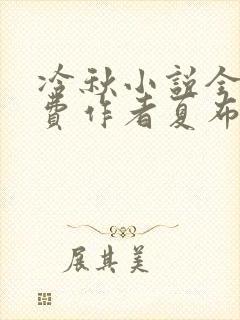 冷秋小説全
費作者夏布
展其美